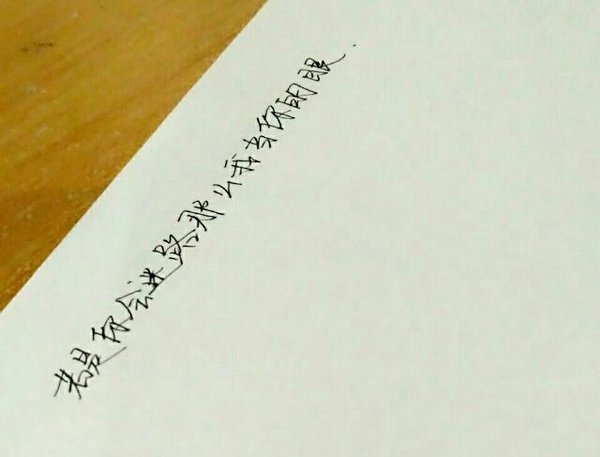 若是你会迷路那么我当你的眼.